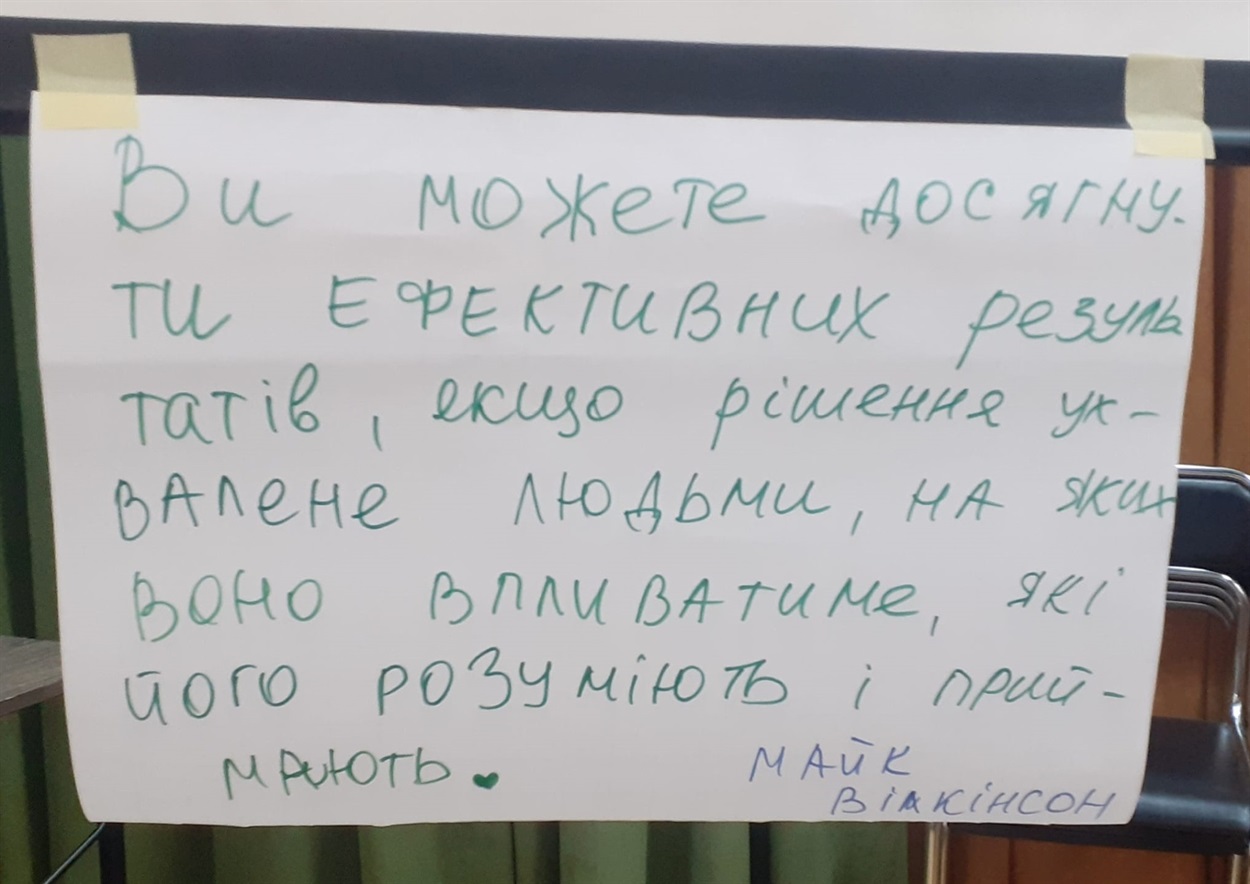 Ви можете досягну-
ти ефективних резуль
татів, якщо рішення ух-
валене людьми, на яких
воно впливатиме, які
його розуміють і прий-
мають.
Майк
Вілкінсон